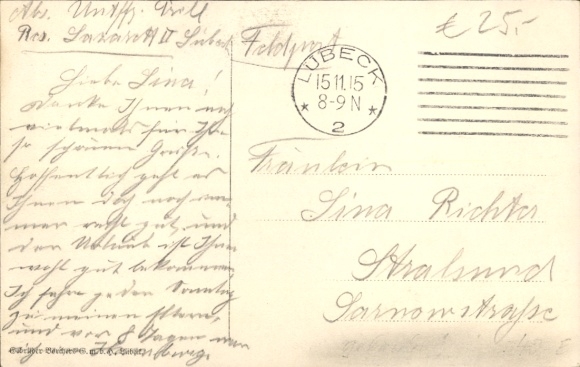 Abs. Untffz. Krell
Res. Lazarett II Lübeck
Feldpost
€ 25,-
LÜBECK
15.11.15
8-9 N
2
Liebe Lina!
Danke Ihnen noch
vielmals für Ihre
so schönen Grüße.
Hoffentlich geht es
Ihnen doch noch im-
mer recht gut, und
der Urlaub ist Ihnen
wohl gut bekommen.
Ich fahre jeden Sonntag
zu meinen Eltern,
und vor 8 Tagen war
ich in
Fräulein
Lina Richter
Stralsund
Sarnowstraße
Gebrüder Borchers G. m. b. H., Lübeck